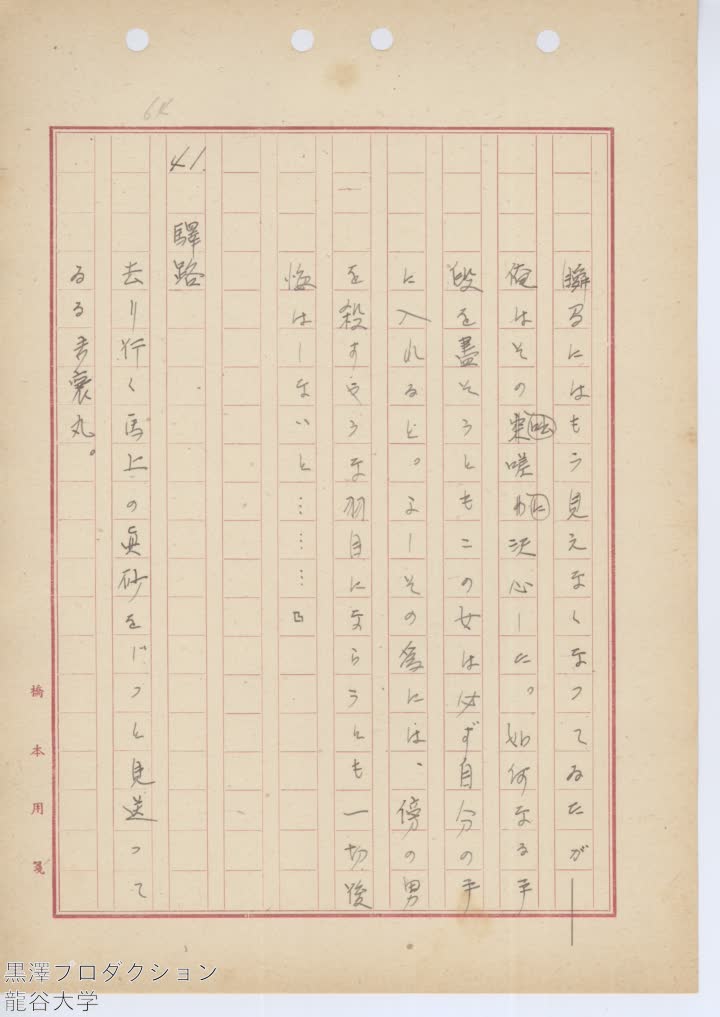 64
瞬間にはもう見えなくなつてゐたが――
俺はその咄嗟に決心した。如何なる手
段を盡そうともこの女は必ず自分の手
に入れると。よしその為には、傍の男
を殺すやうな羽目にならうとも一切後
悔はしないと………」
41. 驛路
去り行く馬上の眞砂をじつと見送つて
ゐる多襄丸。
橋本用箋
黒澤プロダクション
龍谷大学